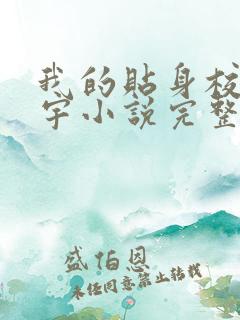 我的贴身校
宇小说完整
盛伯恩
未经同意禁止转载